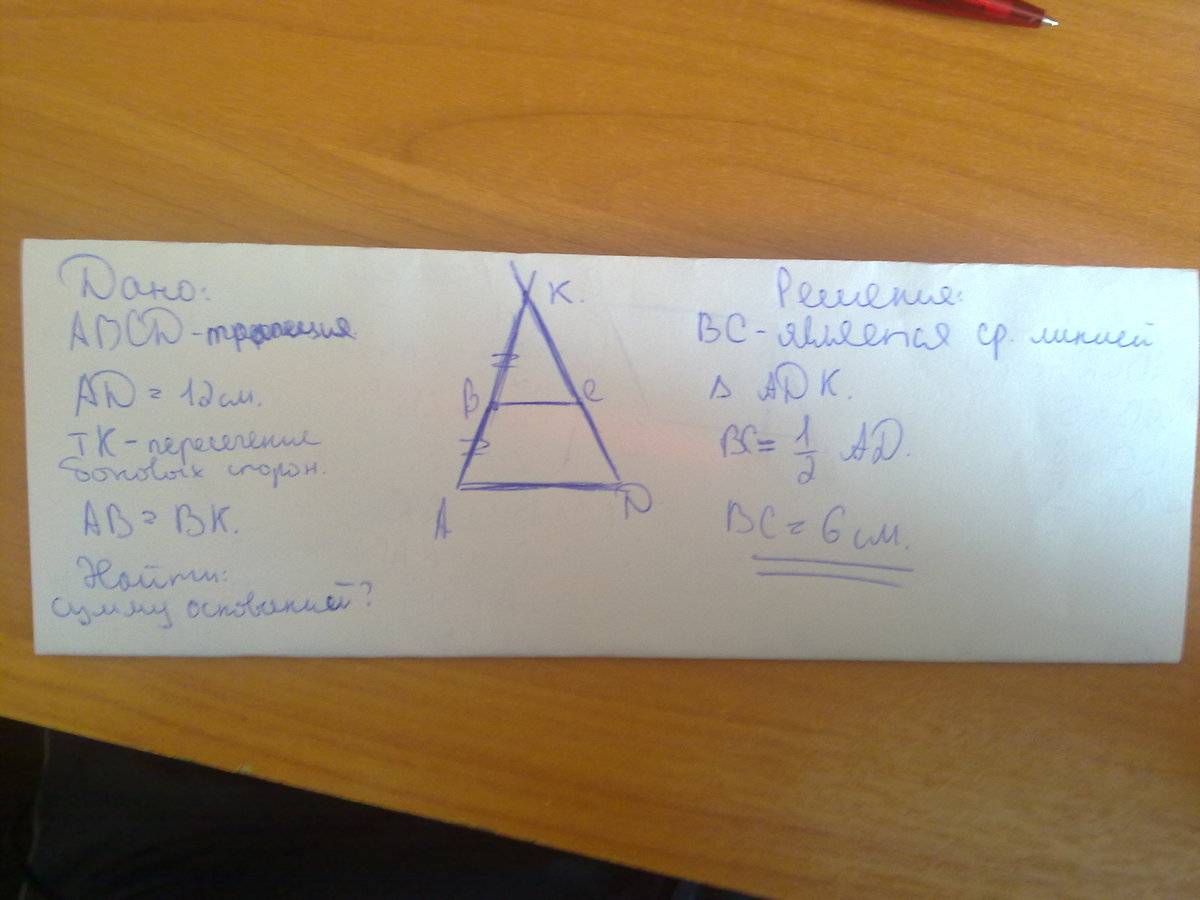 Дано:
ABCD - трапеция
AD = 12 см.
т K - пересечение
боковых сторон.
AB = BK.
Найти:
сумму оснований?
K.
B
C
A
D
Решение:
BC - является ср. линией
Δ ADK.
BC = 1/2 AD.
BC = 6 см.